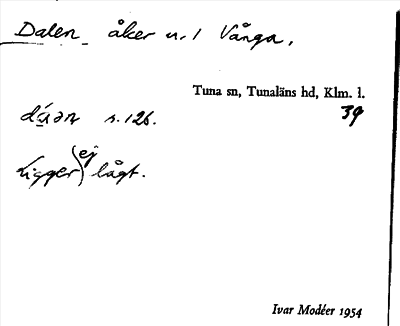 Dalen åker n. 1 Vånga.
Tuna sn, Tunaläns hd, Klm. l.
39
s. 126.
Ligger (ej) lågt.
Ivar Modéer 1954